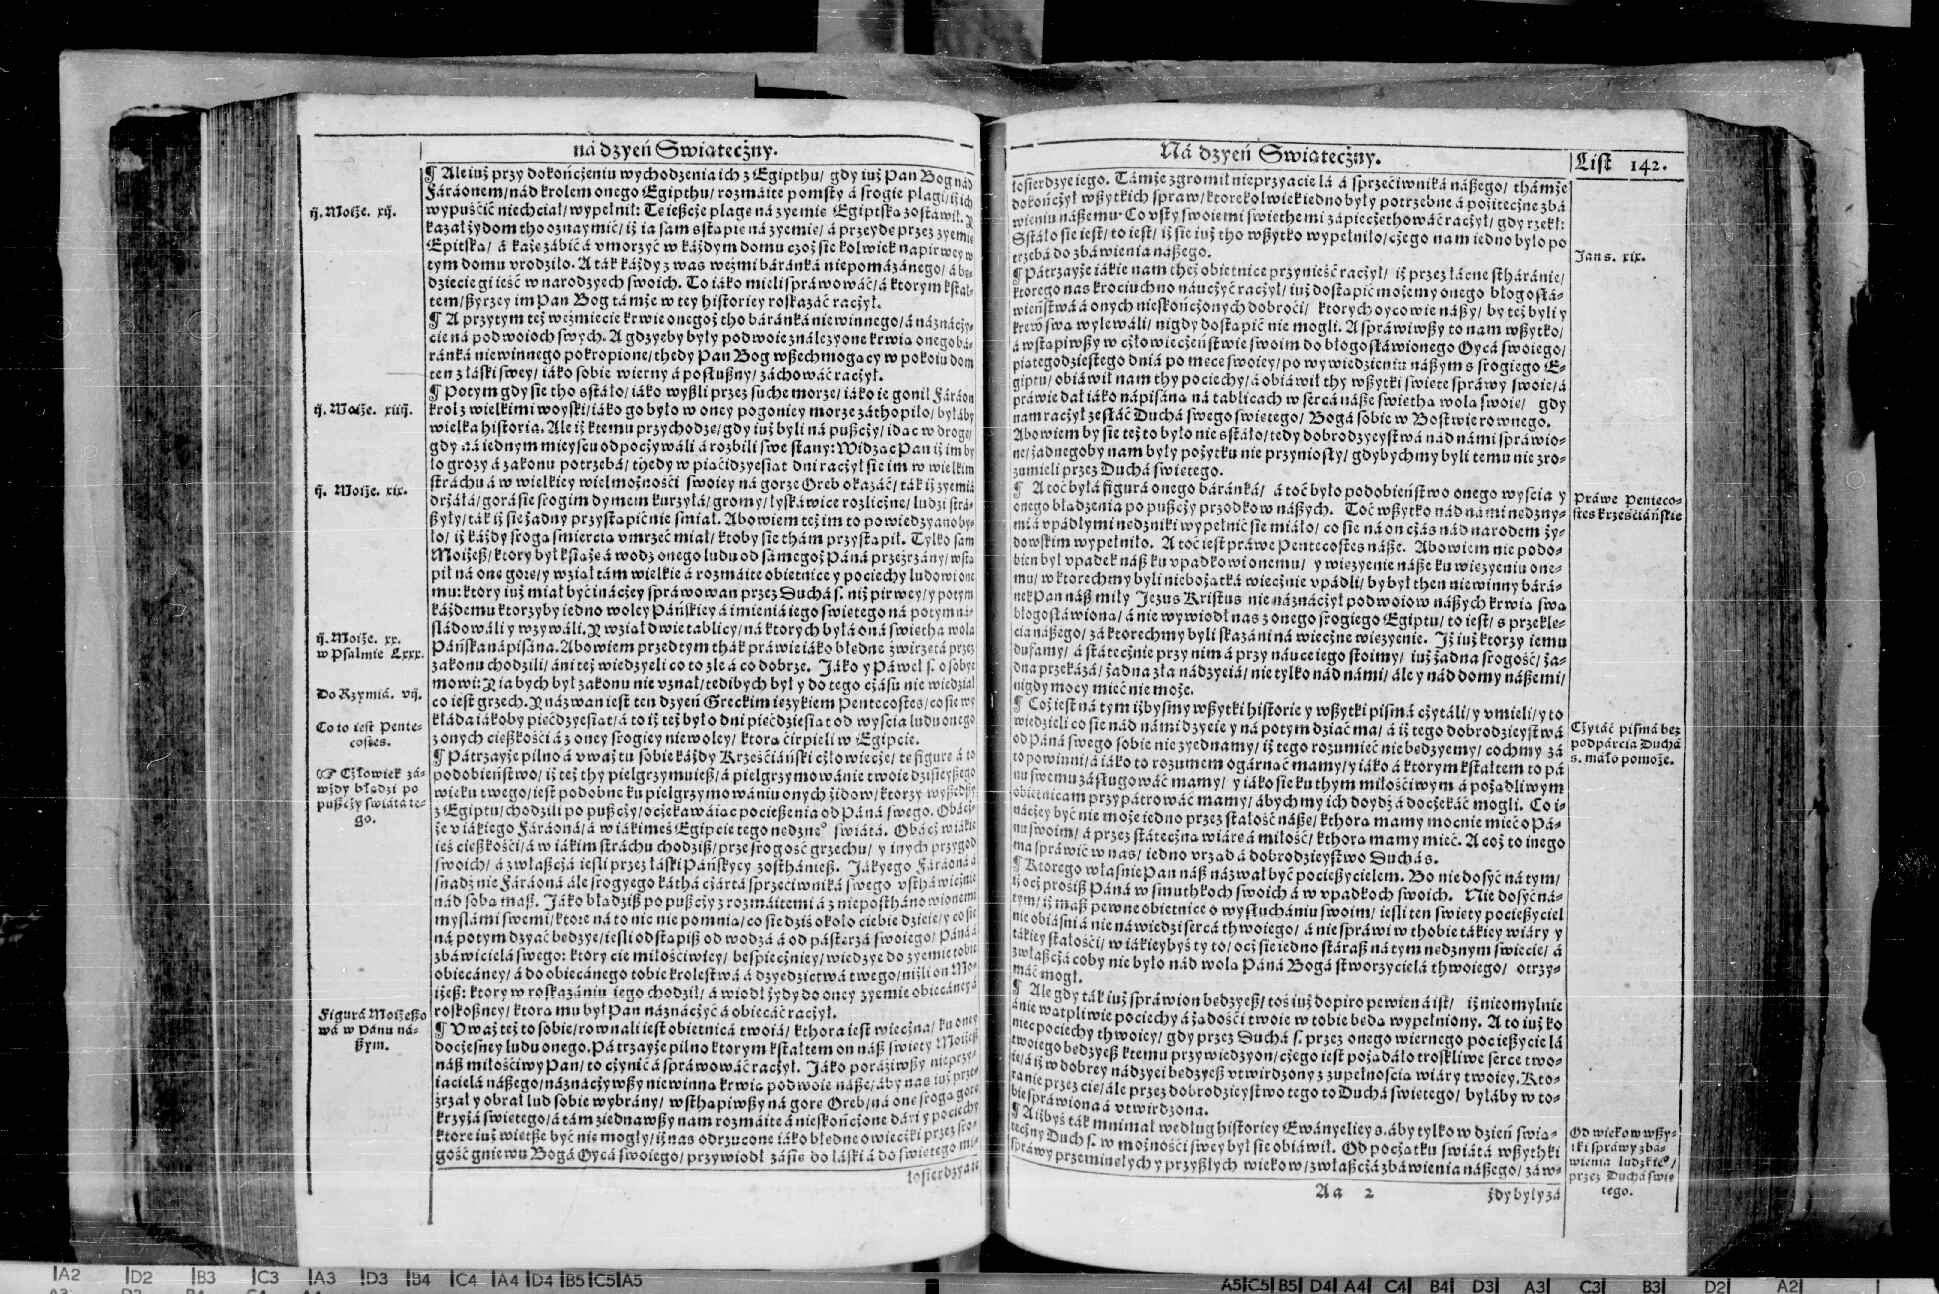 ná dzyeń Swiąteczny.
¶ Ale iuż przy dokończeniu wychodzenia ich z Egipthu/ gdy iuż Pan Bog nád
Fáráonem/ nád krolem onego Egipthu/ rozmáite pomsty á srogie plagi/ iż ich
wypuśćić niechciał/ wypełnił: Te ieszcze plagę ná zyemię Egiptską zostáwił. Y
kazał żydom tho oznaymić/ iż ia sam sstąpię ná zyemię/ á przeydę przez zyemię
Epitską/ á każę zábić á vmorzyć w káżdym domu czoż się kolwiek napirwey w
tym domu vrodziło. A ták káżdy z was weźmi báránká niepomázánego/ á bę-
dziecie gi ieść w narodzyech swoich. To iáko mieli spráwowáć/ á ktorym kstał-
tem/ szyrzey im Pan Bog támże w tey historiey roskázáć raczył.
¶ A przytym też weźmiecie krwie onegoż tho báránká niewinnego/ á náznáczy-
cie ná podwoioch swych. A gdzyeby były podwoie ználezyone krwią onego bá-
ránká niewinnego pokropione/ thedy Pan Bog wszechmogący w pokoiu dom
ten z łáski swey/ iáko sobie wierny á posłuszny/ záchowáć raczył.
¶ Potym gdy się tho sstáło/ iáko wyszli przez suche morze/ iáko ie gonił Fáráon
krol z wielkimi woyski/ iáko go było w oney pogoniey morze záthopiło/ byłáby
wielka historia. Ale iż ktemu przychodzę/ gdy iuż byli ná puszczy/ idąc w drogę/
gdy ná iednym mieyscu odpoczywáli á rozbili swe stany: Widząc Pan iż im by
ło grozy á zakonu potrzebá/ thedy w piąćidzyesiąt dni raczył się im w wielkim
stráchu á w wielkiey wielmożnośći swoiey ná gorze Oreb okazáć/ ták iż zyemiá
drżáłá/ gorá się srogim dymem kurzyłá/ gromy/ łyskáwice rozliczne/ ludzi strá-
szyły/ ták iż się żadny przystąpić nie śmiał. Abowiem też im to powiedzyano by-
ło/ iż káżdy srogą śmiercią vmrzeć miał/ ktoby się thám przystąpił. Tylko sam
Moiżesz/ ktory był książę á wodz onego ludu od sámegoż Páná przeźrzány/ wstą
pił ná onę gorę/ y wziął tám wielkie á rozmáite obietnice y pociechy ludowi one
mu: ktory iuż miał być ináczey spráwowan przez Duchá ś. niż pirwey/ y potym
káżdemu ktorzyby iedno woley Páńskiey á imieniá iego świętego ná potym ná-
śládowáli y wzywáli. Y wziął dwie tablicy/ ná ktorych byłá oná świętha wola
Páńska nápisána. Abowiem przed tym thák práwie iáko błędne źwirzętá przez
zakonu chodzili/ áni też wiedzyeli co to złe á co dobrze. Jáko y Páweł ś. o sobye
mowi: Y ia bych był zakonu nie vznał/ tedi bych był y do tego czásu nie wiedział
co iest grzech. Y názwan iest ten dzyeń Greckim ięzykiem Pentecostes/ co sie wy
kłáda iákoby pięćdzyesiąt/ á to iż też było dni pięćdziesiąt od wyścia ludu onego
z onych cięszkośći á z oney srogiey niewoley/ ktorą ćirpieli w Egipcie.
¶ Pátrzayże pilno á vważ tu sobie káżdy Krześćiáński człowiecze/ tę figurę á to
podobieństwo/ iż też thy pielgrzymuiesz/ á pielgrzymowánie twoie dzisieyszego
wieku twego/ iest podobne ku pielgrzymowániu onych żidow/ ktorzy wyszedszy
z Egiptu/ chodzili po puszczy/ oczekawáiąc pocieszenia od Páná swego. Obacz-
że v iákiego Fáráoná/ á w iákimeś Egipcie tego nędzne° światá. Obacz w iákie
ieś ciężkośći/ á w iákim stráchu chodzisz/ prze srogość grzechu/ y inych przygod
swoich/ á zwłaszczá iesli przez łáski Páńskyey zosthániesz. Jákyego Fáráoná á
snadź nie Fáráoná ále srogyego káthá czártá sprzećiwniká swego vsthawicznie
nád sobą masz. Jáko błądzisz po puszczy z rozmáitemi á z niepostháno wionemi
myślámi swemi/ ktore ná to nic nie pomnią/ co się dziś około ciebie dzieie/ y co się
ná potym dzyać będzye/ iesli odstąpisz od wodzá á od pásterzá swoiego/ Páná á
zbáwicielá swego: ktory cię miłośćiwiey/ bespieczniey/ wiedzye do zyemię tobie
obiecáney/ á do obiecánego tobie krolestwá á dzyedzictwá twego/ niżli on Mo-
iżesz: ktory w roskazániu iego chodził/ á wiodł żydy do oney zyemie obiecáney á
roskoszney/ ktorą mu był Pan náznáczyć á obiecáć raczył.
¶ Vważ też to sobie/ rownali iest obietnicá twoiá/ kthora iest wieczna/ ku oney
doczesney ludu onego. Pátrzayże pilno ktorym kstałtem on náß święty Moiżesz
náß miłośćiwy Pan/ to czynić á spráwowáć raczył. Jáko poráziwszy nieprzy-
iacielá nászego/ náznáczywszy niewinną krwią podwoie násze/ áby nas iuż przey-
źrzał y obrał lud sobie wybrány/ wsthąpiwszy ná gorę Oreb/ ná onę srogą gorę
krzyżá świętego/ á tám ziednawszy nam rozmáite á nieskończone dáry y pociechy
ktore iuż więtsze być nie mogły/ iż nas odrzucone iáko błędne owieczki przez sro-
gość gniewu Bogá Oycá swoiego/ przywiodł zásię do łáski á do świętego mi-
łosierdzya ie
ij. Moiże. xij.
ij. Moiże. xiiij.
ij. Moiże. xix.
ij. Moiże. xx.
w Psalmie Lxxx.
Do Rzymiá. vij.
Co to iest Pente-
costes.
☞ Człowiek zá-
wżdy błądzi po
puszczy światá te-
go.
Figurá Moiżeszo
wá w Pánu ná-
szym.
Ná dzyeń Swiąteczny.
List 142.
łosierdzye iego. Támże zgromił nieprzyacielá á sprzećiwniká nászego/ thámże
dokończył wszytkich spraw/ ktorekolwiek iedno były potrzebne á pożiteczne zbá
wieniu nászemu. Co vsty swoiemi świethemi zápieczęthowáć raczył/ gdy rzekł:
Sstáło się iest/ to iest/ iż się iuż tho wszytko wypełniło/ czego nam iedno było po
trzebá do zbáwienia nászego.
¶ Pátrzayże iákie nam też obietnice przynieść raczył/ iż przez łácne stháránie/
ktorego nas krociuchno náuczyć raczył/ iuż dostąpić możemy onego błogosłá-
wieństwá á onych nieskończonych dobroći/ ktorych oycowie nászy/ by też byli y
krew swą wylewáli/ nigdy dostąpić nie mogli. A spráwiwszy to nam wszytko/
á wstąpiwszy w człowieczeństwie swoim do błogosłáwionego Oycá swoiego/
piątegodziestego dniá po męce swoiey/ po wywiedzieniu nászym s srogiego E-
giptu/ obiáwił nam thy pociechy/ á obiáwił thy wszytki święte spráwy swoie/ á
práwie dał iáko nápisána ná tablicach w sercá násze świętha wola swoię/ gdy
nam raczył zesłáć Duchá swego świętego/ Bogá sobie w Bostwie rownego.
Abowiem by się też to było nie sstáło/ tedy dobrodzyeystwá nád námi spráwio-
ne/ żadnegoby nam były pożytku nie przyniosły/ gdybychmy byli temu nie zro-
zumieli przez Duchá świętego.
¶ A toć byłá figurá onego báránká/ á toć było podobieństwo onego wyścia y
onego błądzenia po puszczy przodkow nászych. Toć wszytko nád námi nędzny-
mi á vpádłymi nędzniki wypełnić się miáło/ co się ná on czás nád narodem ży-
dowskim wypełniło. A toć iest práwe Pentecostes násze. Abowiem nie podo-
bien był vpadek nász ku vpadkowi onemu/ y więzyenie násze ku więzyeniu one-
mu/ w ktorechmy byli niebożątká wiecznie vpádli/ by był then niewinny bárá-
nek Pan nász miły Jezus Kristus nie náznáczył podwoiow nászych krwią swą
błogosłáwioną/ á nie wywiodł nas z onego srogiego Egiptu/ to iest/ s przeklę-
cia nászego/ zá ktorechmy byli skazáni ná wieczne więzyenie. Jż iuż ktorzy iemu
dufamy/ á státecznie przy nim á przy náuce iego stoimy/ iuż żadna srogość/ żá-
dna przekázá/ żadna zła nádzyeiá/ nie tylko nád námi/ ále y nád domy nászemi/
nigdy mocy mieć nie może.
¶ Coż iest ná tym iżbysmy wszytki historie y wszytki pismá czytáli/ y vmieli/ y to
wiedzieli co się nád námi dzyeie y ná potym dziać ma/ á iż tego dobrodzieystwá
od Páná swego sobie nie zyednamy/ iż tego rozumieć nie będzyemy/ cochmy zá
to powinni/ á iáko to rozumem ogárnąć mamy/ y iáko á ktorym kstałtem to pá
nu swemu zásługowáć mamy/ y iáko się ku thym miłośćiwym á pożądliwym
obietnicam przypátrowáć mamy/ ábychmy ich doydź á doczekáć mogli. Co i-
náczey być nie może iedno przez stáłość násze/ kthorą mamy mocnie mieć o Pá-
nu swoim/ á przez státeczną wiárę á miłość/ kthorą mamy mieć. A coż to inego
ma spráwić w nas/ iedno vrząd á dobrodzieystwo Duchá ś.
¶ Ktorego własnie Pan nász názwał być pocieszycielem. Bo nie dosyć ná tym/
iż ocż prosisz Páná w smuthkoch swoich á w vpadkoch swoich. Nie dosyć ná-
tym/ iż masz pewne obietnice o wysłuchániu swoim/ iesli ten święty pocieszyciel
nie obiáśni á nie náwiedzi sercá thwoiego/ á nie spráwi w thobie tákiey wiáry y
tákiey stáłośći/ w iákieybyś ty to/ ocż się iedno stárasz ná tym nędznym świecie/ á
zwłaszczá coby nie było nád wolą Páná Bogá stworzycielá thwoiego/ otrzy-
máć mogł.
¶ Ale gdy ták iuż spráwion będzyesz/ toś iuż dopiro pewien á ist/ iż nieomylnie
á nie wątpliwie pociechy á żądośći twoie w tobie będą wypełniony. A to iuż ko
niec pociechy thwoiey/ gdy przez Duchá ś. przez onego wiernego pocieszycielá
twoiego będzyesz ktemu przywiedzyon/ czego iest pożądáło troskliwe serce two-
ie/ á iż w dobrey nádzyei będzyesz vtwirdzony z zupełnością wiáry twoiey. Kto-
ra nie przez cię/ ále przez dobrodzieystwo tego to Duchá świętego/ byłáby w to-
bie spráwiona á vtwirdzona.
¶ A iżbyś ták mnimał według historiey Ewányeliey s. áby tylko w dzień świą-
teczny Duch ś. w możnośći swey był się obiáwił. Od początku światá wszythki
spráwy przeminęłych y przyszłych wiekow/ zwłaszczá zbáwienia nászego/ záw-
Aa 2
żdy były zá
Jan s. xix.
Práwe Penteco-
stes krześćiáńskie
Czytáć pismá bez
podpárcia Duchá
s. máło pomoże.
Od wiekow wszy-
tki spráwy zbá-
wienia ludzkie°/
przez Duchá świę
tego.